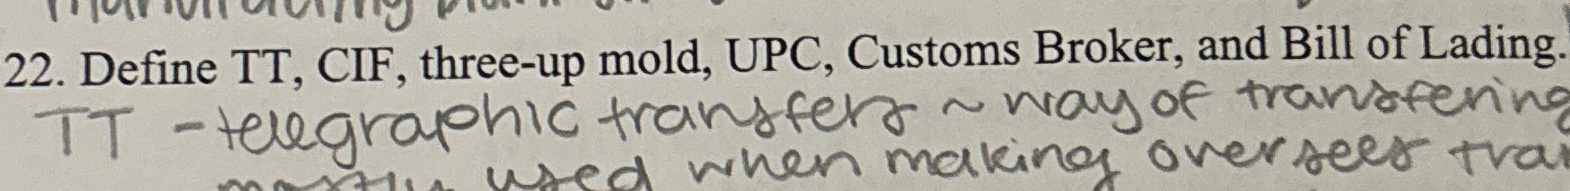 manufacturing plant
22. Define TT, CIF, three-up mold, UPC, Customs Broker, and Bill of Lading.
TT - telegraphic transfers ~ way of transfering
mostly used when making oversees tra